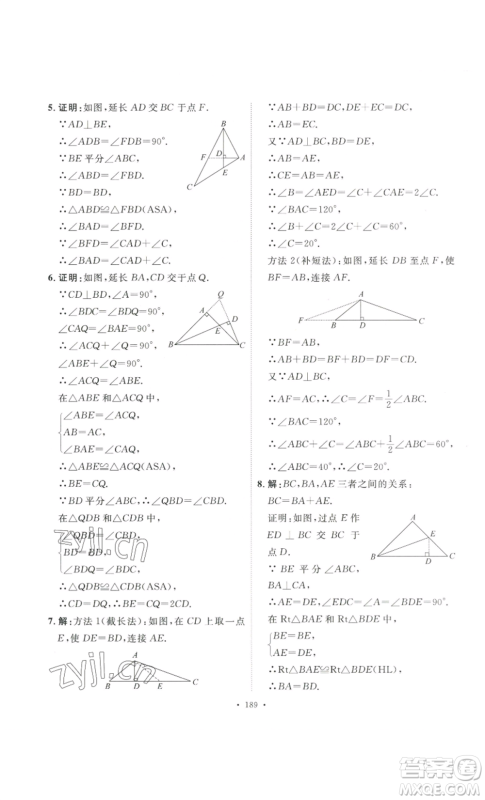 5. 证明:如图,延长 AD 交 BC 于点 F.
∵AD⊥BE,
∴∠ADB=∠FDB=90°.
∵BE 平分∠ABC,
∴∠ABD=∠FBD.
∵BD=BD,
∴△ABD≌△FBD(ASA),
∴∠BAD=∠BFD.
∵∠BFD=∠CAD+∠C,
∴∠BAD=∠CAD+∠C.
6. 证明:如图,延长 BA,CD 交于点 Q.
∵BD⊥CD,∠A=90°,
∴∠BDC=∠BDQ=90°,
∠CAQ=∠BAE=90°.
∴∠ACQ+∠Q=90°,
∠ABE+∠Q=90°.
∴∠ACQ=∠ABE.
在△ABE 和△ACQ 中,
∠ABE=∠ACQ,
AB=AC,
∠BAE=∠CAQ,
∴△ABE≌△ACQ(ASA),
∴BE=CQ.
∵BD 平分∠ABC,
∴∠QBD=∠CBD.
在△QDB 和△CDB 中,
∠QBD=∠CBD,
BD=BD,
∠BDQ=∠BDC,
∴△QDB≌△CDB(ASA),
∴CD=DQ.
∴BE=CQ=2CD.
7. 解:方法 1(截长法):如图,在 CD 上取一点
E,使 DE=BD,连接 AE.
∵AB+BD=DC,DE+CE=DC,
∴AB+BD=BD+CE,
∴AB=CE.
又∵AD⊥BE,BD=DE,
∴AB=AE.
∴CE=AB=AE.
∴∠B=∠AEB=2∠C.
∵∠BAC=120°,
∴∠B+∠C=2∠C+∠C=60°,
∴∠C=20°.
方法 2(补短法):如图,延长 DB 至点 F,使
BF=AB,连接 AF.
∵BF=AB,AB+BD=DC,
∴BF+BD=DC,
即 DF=DC.
又∵AD⊥BC,
∴AF=AC,∴∠C=∠F=1/2∠ABC.
∵∠BAC=120°,
∴∠ABC+∠C=60°.
∴∠ABC=40°,∴∠C=1/2∠ABC=20°.
8. 解:BC,BA,AE 三者之间的关系:
BC=BA+AE.
证明:如图,过点 E 作
ED⊥BC 交 BC 于
点 D.
∵BE 平分∠ABC,
BA⊥CA,
∴AE=DE,∠EDC=∠BAC=90°,
在 Rt△BAE 和 Rt△BDE 中,
BE=BE,
AE=DE,
∴Rt△BAE≌Rt△BDE(HL),
∴BA=BD.
• 189 •
zyjl.cn
zyjl.cn
答案圈
MXQE.COM